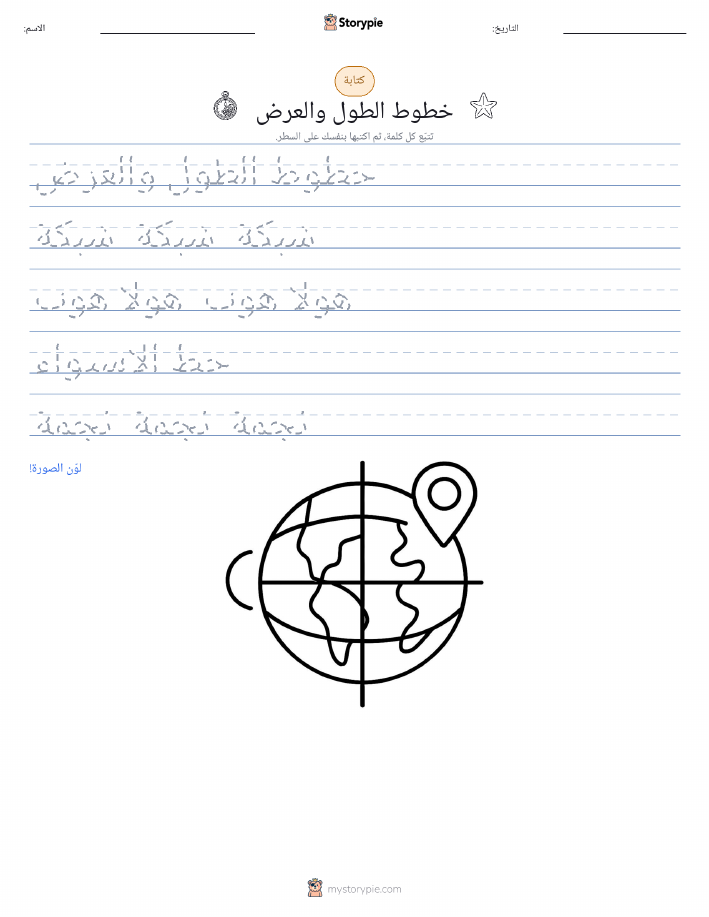 الاسم: Storypie التاريخ:
كتابة
خطوط الطول والعرض
تتبّع كل كلمة، ثم اكتبها بنفسك على السطر.
خطوط الطول والعرض
شبكة شبكة شبكة
هولا هوب هولا هوب
خط الاستواء
نجمة نجمة نجمة
لوّن الصورة!
mystorypie.com